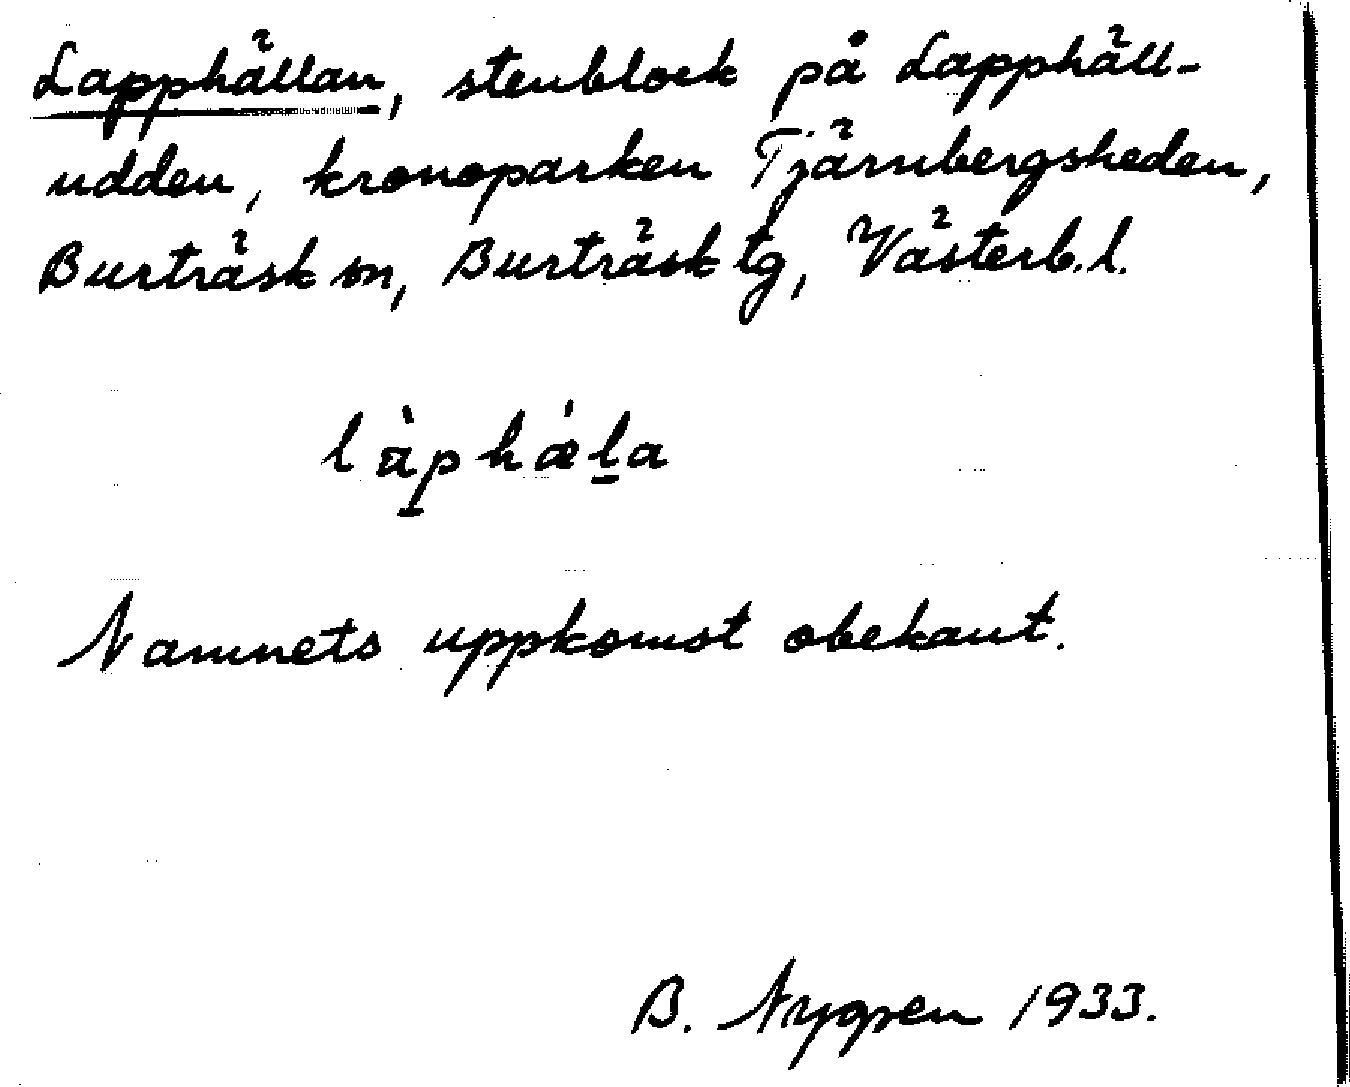 Lapphällan, stenblock på Lapphäll-
udden, kronoparken Tjärnbergsheden,
Burträsk sn, Burträsk tg, Västerb. l.
làp̱hǽḻa
Namnets uppkomst obekant.
B. Nygren 1933.